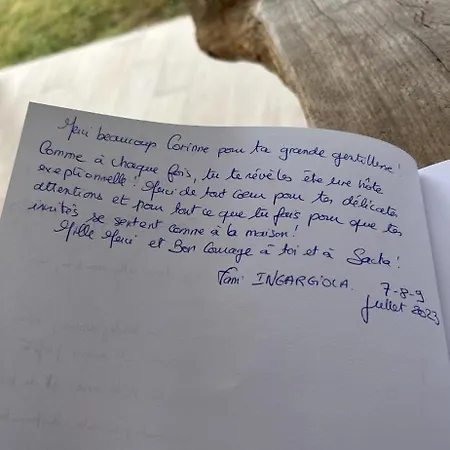 Merci beaucoup Corinne pour ta grande gentillesse!
Comme à chaque fois, tu te révèles être une hôte
exceptionnelle! Merci de tout cœur pour tes délicates
attentions et pour tout ce que tu fais pour que tes
invités se sentent comme à la maison!
Mille Merci et Bon Courage à toi et à Sacha!
Fami INGARGIOLA.
7-8-9
Juillet 2023